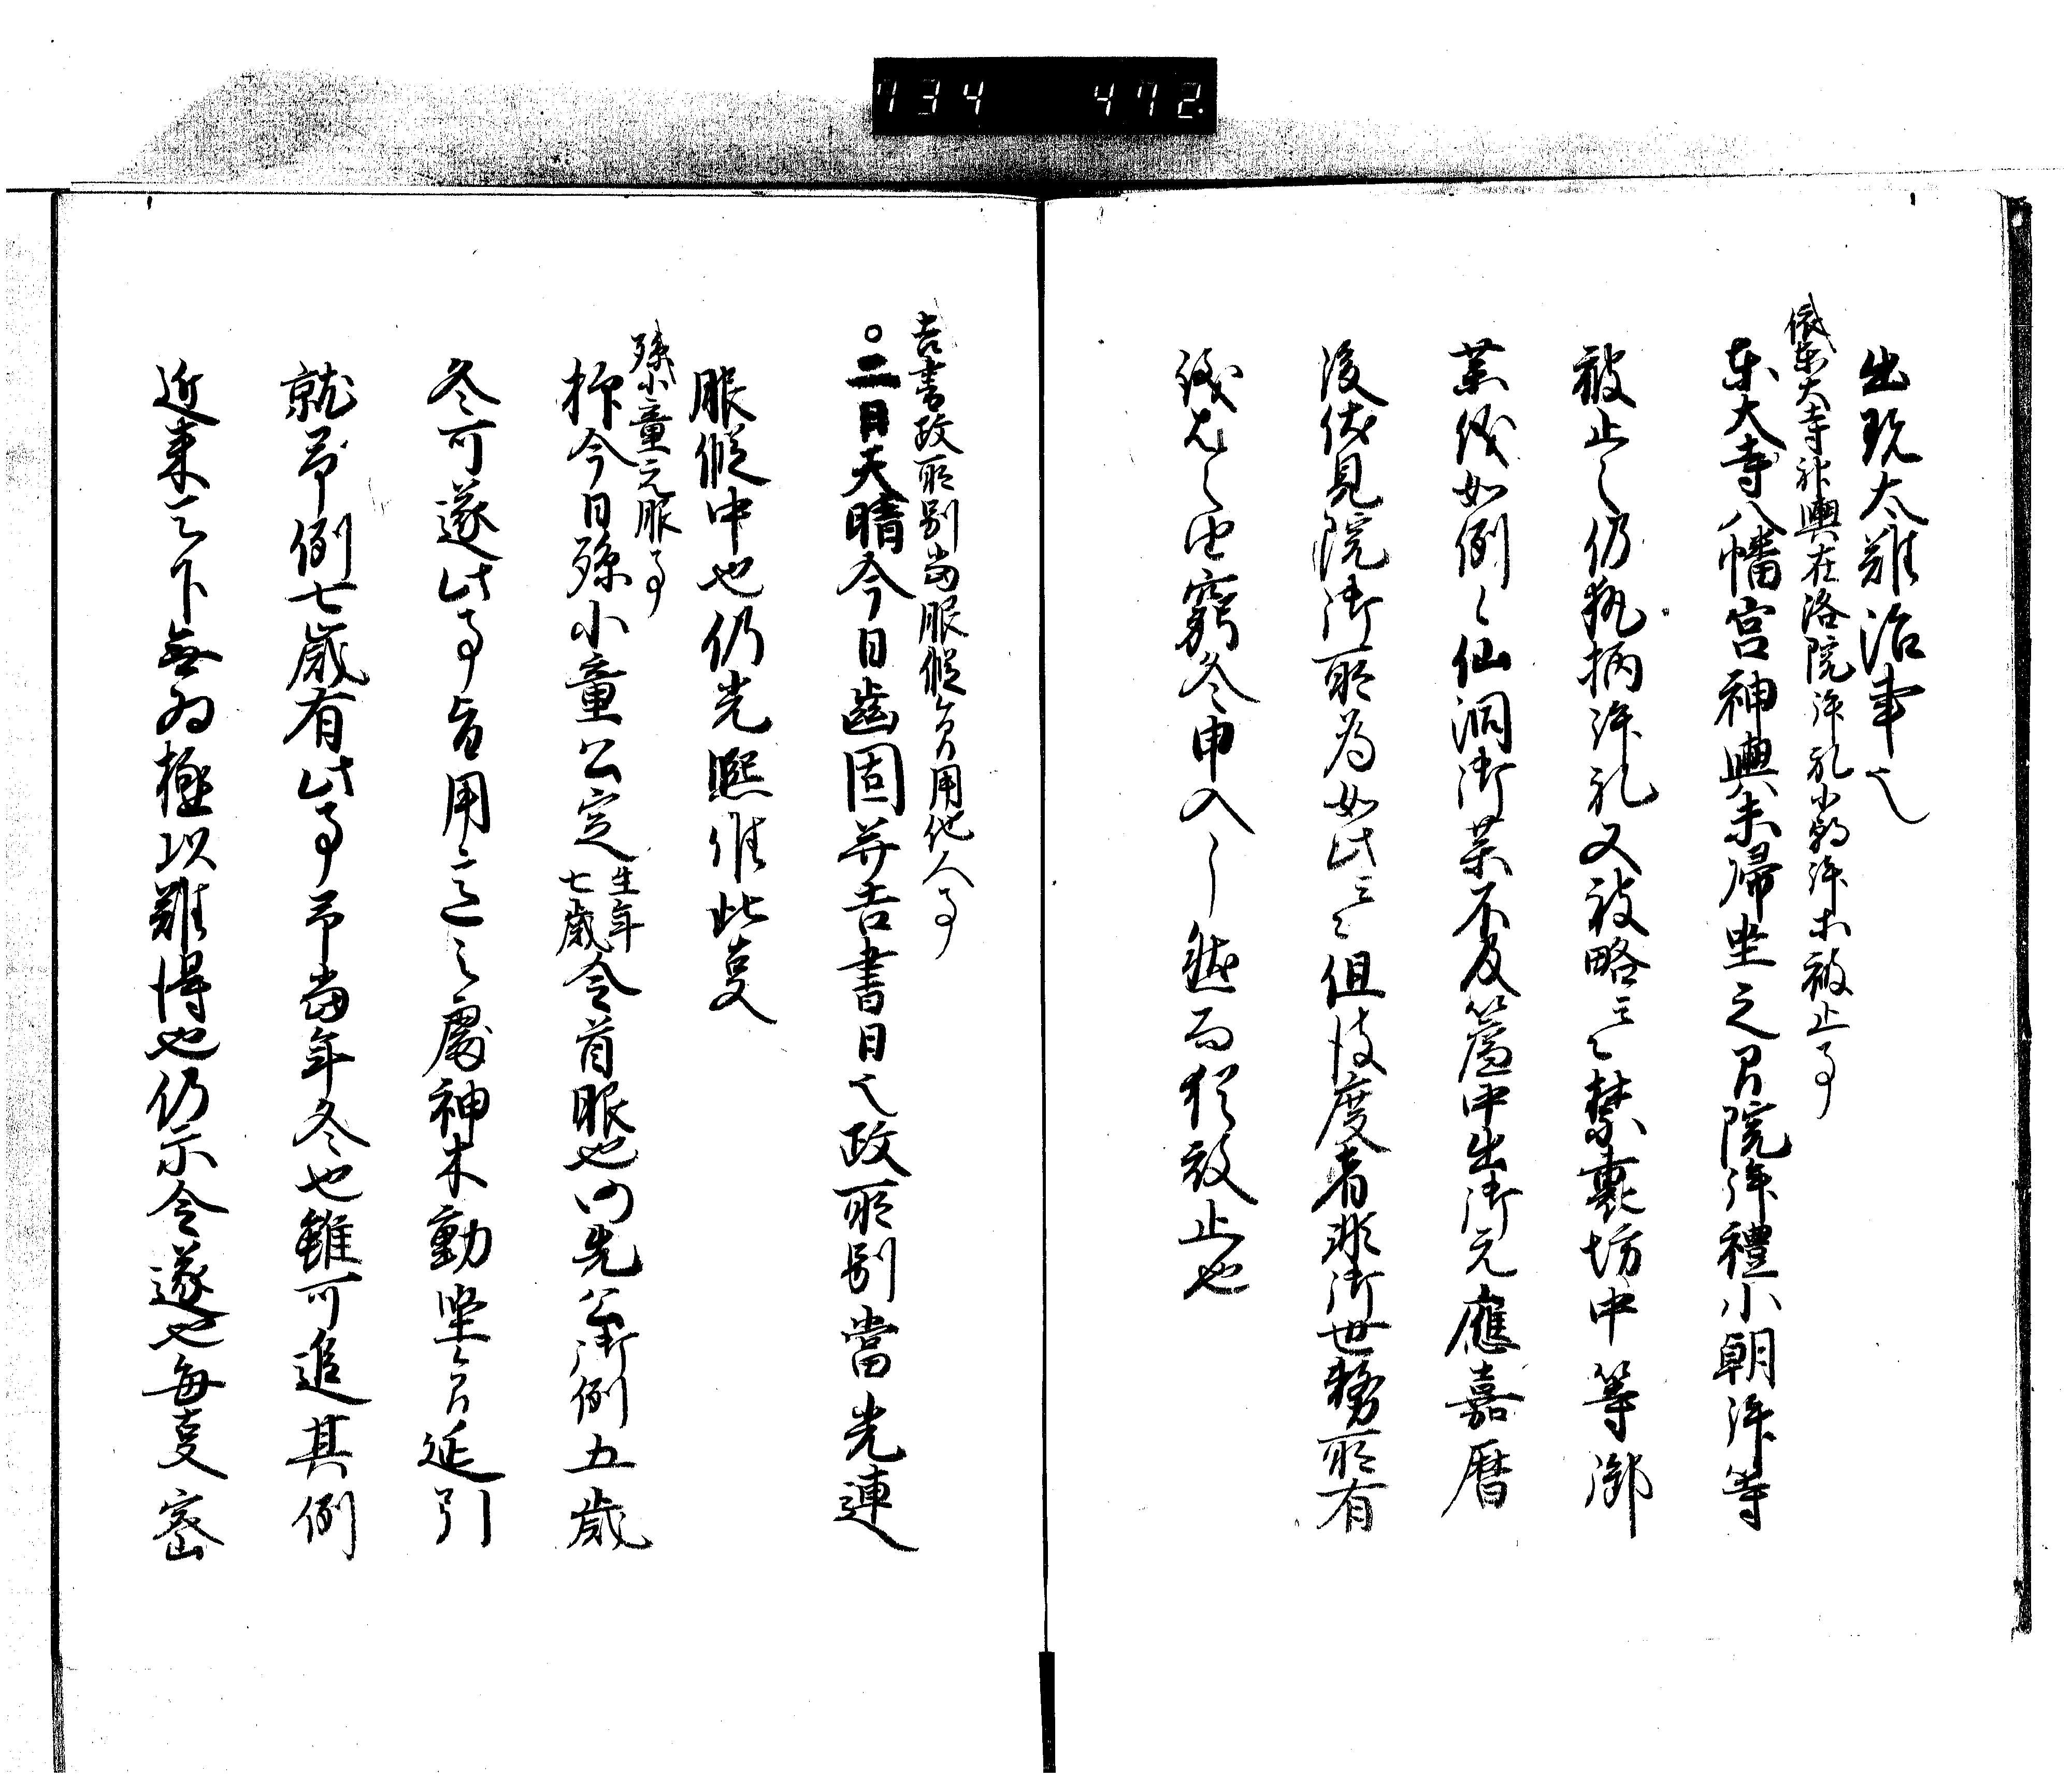 734 472
出現太難治事也
依東大寺神輿在洛院拝礼小朝拝等被止事
東大寺八幡宮神輿未帰坐之間院拝禮小朝拝等
被止之仍執柄拝礼又被略云々禁裏坊中等御
薬儀如例々仙洞御薬不及簾中出御元應嘉暦
後伏見院御所為如此云々但彼度者非御世務所有
儀尤之由窮冬申入之然而猶被止也
吉書政所別当服仮之間用他人事
○二日天晴今日歯固并吉書目也政所別當光連
服仮中也仍光熙催此事
孫小童元服事
抑今日孫小童公定生年七歳令首服也向先公御例五歳
冬可遂此事旨用意之處神木動坐之間延引
就吊例七歳有此事吊当年冬也雖可追其例
近来天下無為極以難得也仍示令遂也毎事密